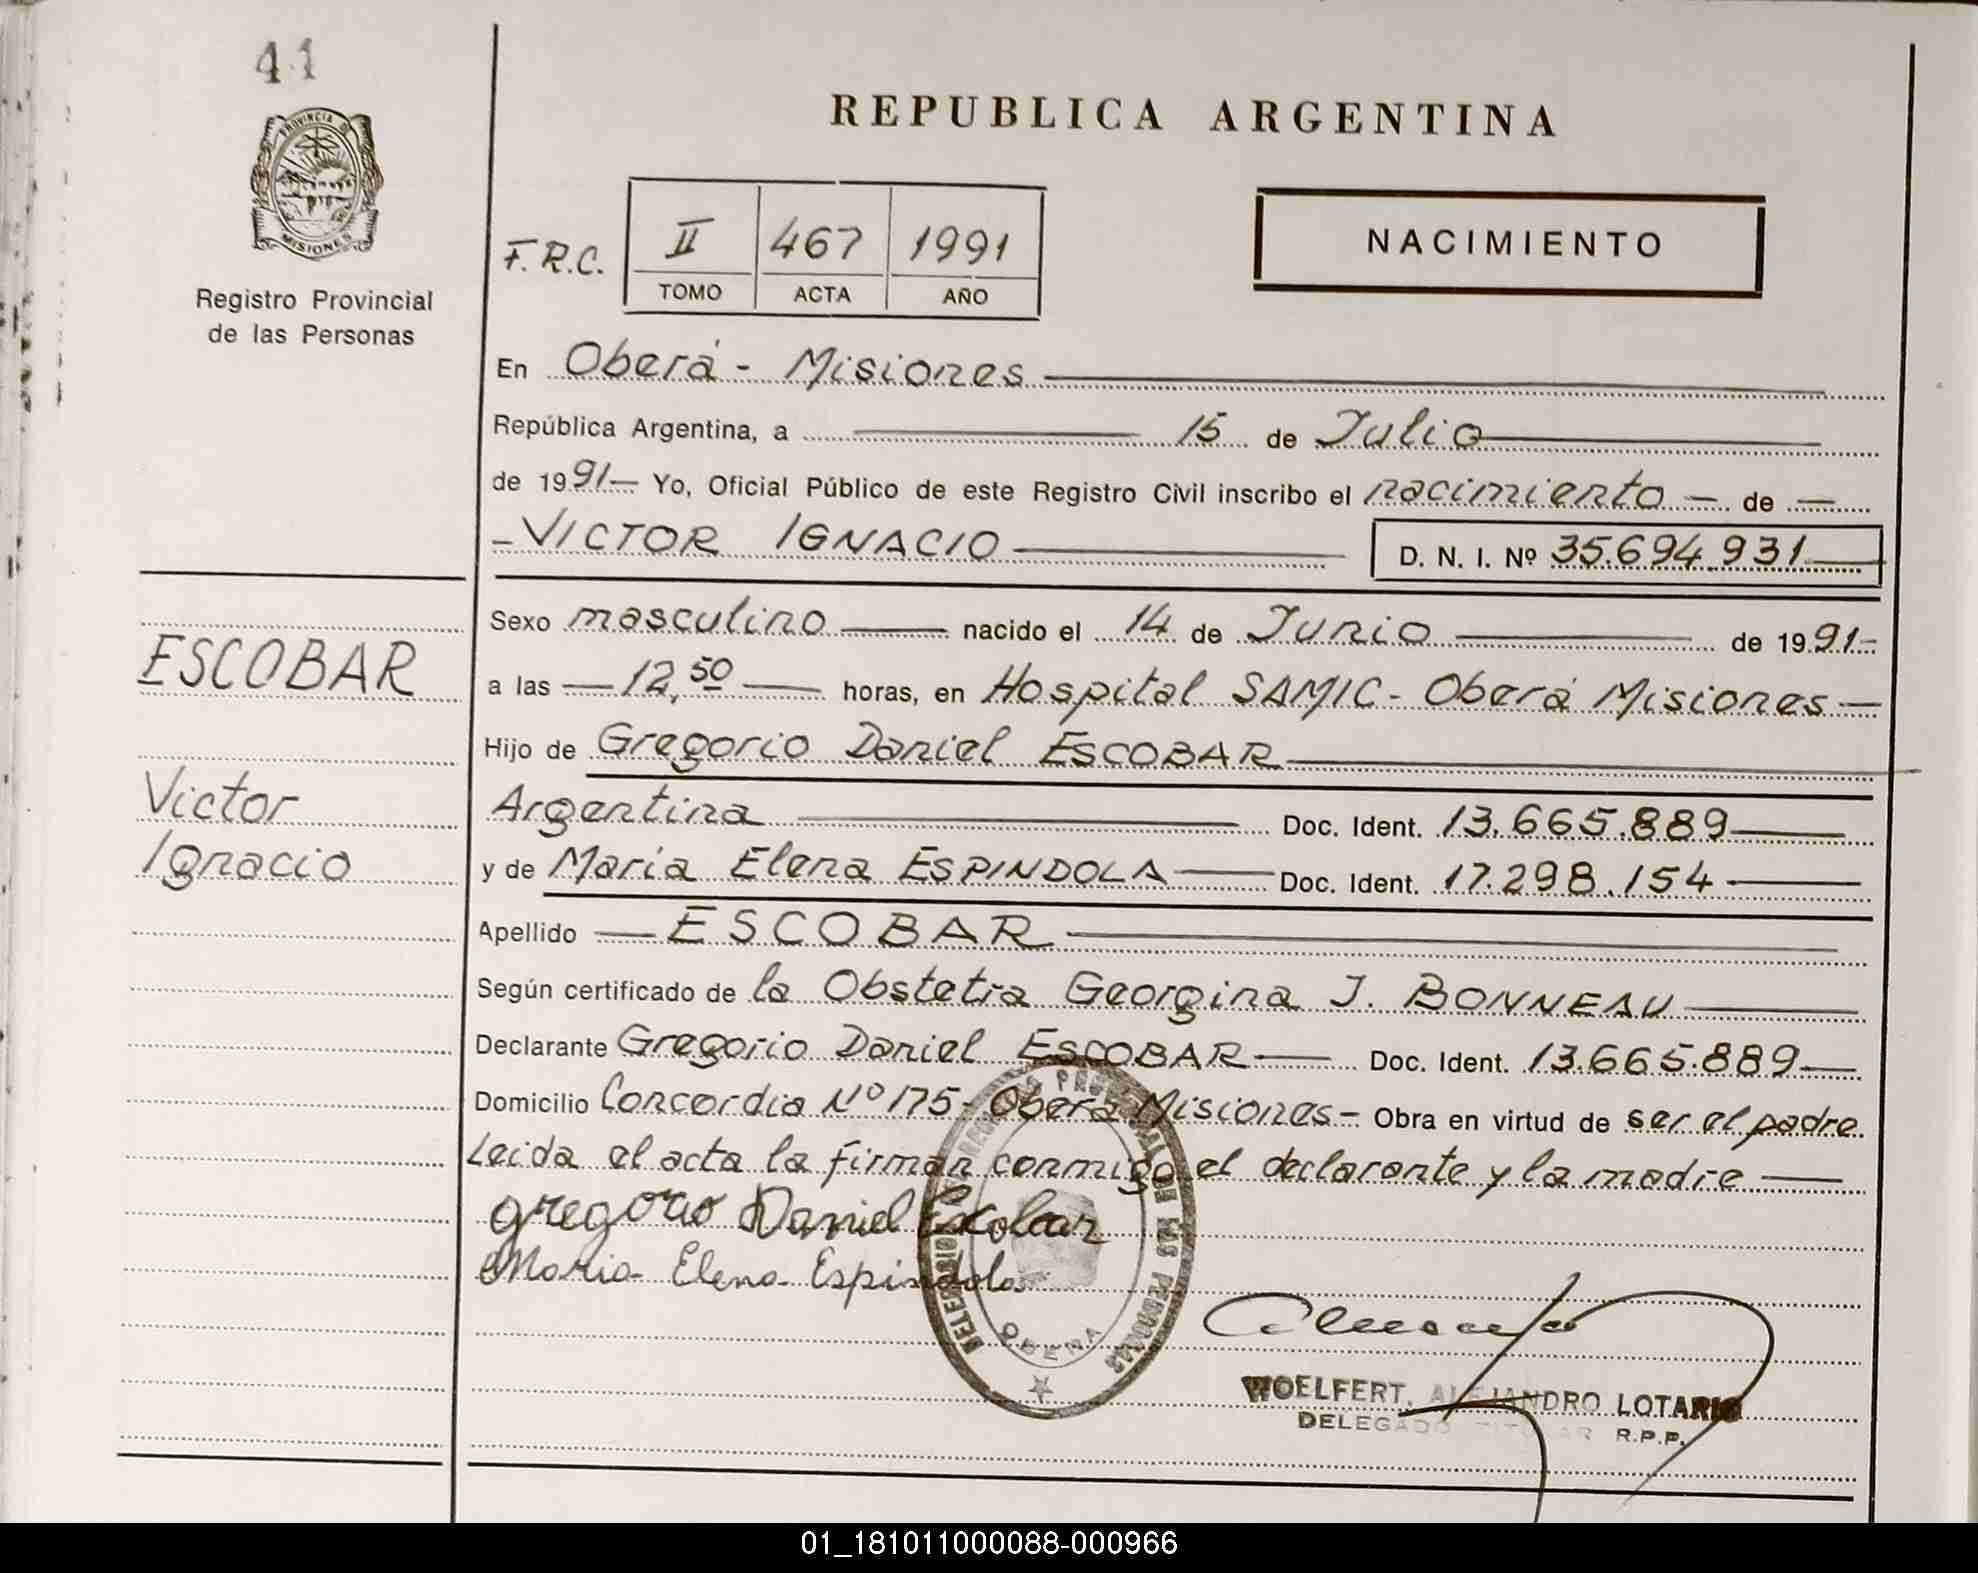 41
PROVINCIA DE
MISIONES
Registro Provincial
de las Personas
REPUBLICA ARGENTINA
F.R.C.
II 467 1991
TOMO ACTA AÑO
NACIMIENTO
En Oberá - Misiones
República Argentina, a 15 de Julio
de 1991 Yo, Oficial Público de este Registro Civil inscribo el nacimiento de
VICTOR IGNACIO D. N. I. Nº 35.694.931
ESCOBAR
Victor
Ignacio
Sexo masculino nacido el 14 de Junio de 1991
a las 12,50 horas, en Hospital SAMIC - Oberá Misiones
Hijo de Gregorio Daniel ESCOBAR
Argentina Doc. Ident. 13.665.889
y de Maria Elena ESPINDOLA Doc. Ident. 17.298.154
Apellido ESCOBAR
Según certificado de la Obstetra Georgina J. BONNEAU
Declarante Gregorio Daniel ESCOBAR Doc. Ident. 13.665.889
Domicilio Concordia Nº 175 - Oberá Misiones - Obra en virtud de ser el padre
Leida el acta la firman conmigo el declarante y la madre
gregorio Daniel Escobar
Maria Elena Espindola
OBERA
WOELFERT, ALEJANDRO LOTARIO
DELEGADO TITULAR R.P.P.
01_181011000088-000966